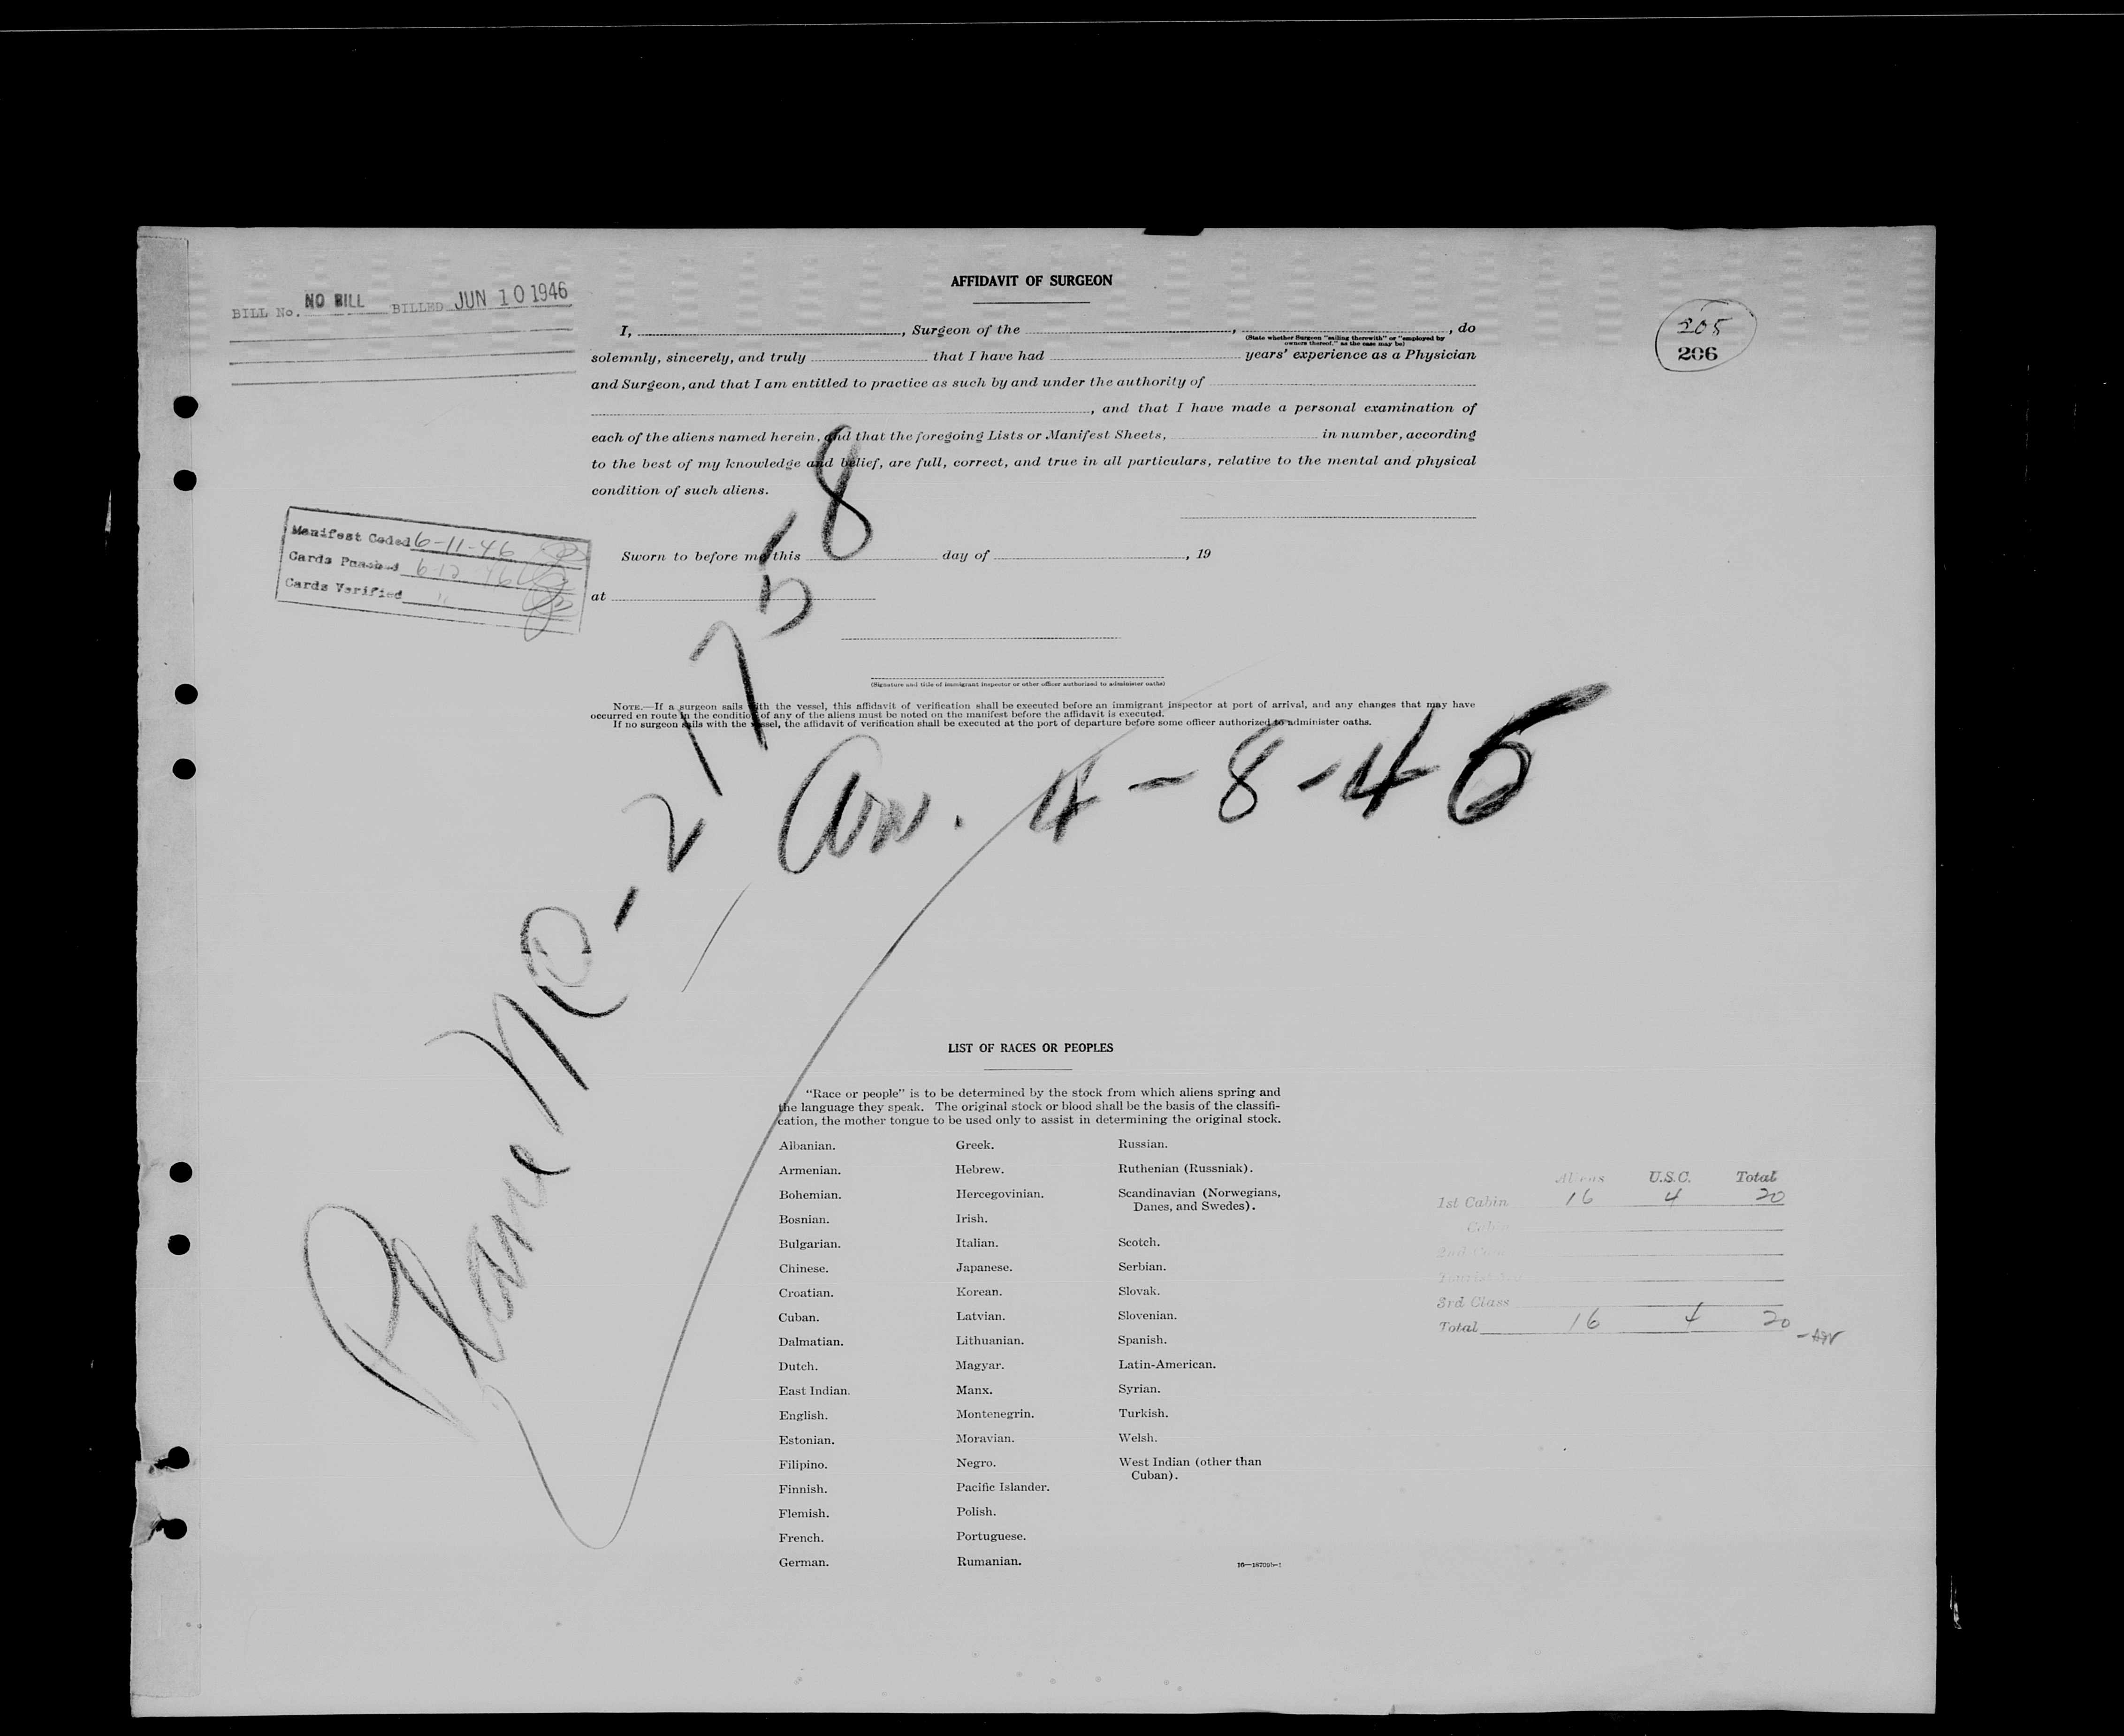 AFFIDAVIT OF SURGEON
BILL No. NO BILL BILLED JUN 10 1946
205
206
I, , Surgeon of the , , do
(State whether Surgeon "sailing therewith" or "employed by
owners thereof," as the case may be)
solemnly, sincerely, and truly that I have had years' experience as a Physician
and Surgeon, and that I am entitled to practice as such by and under the authority of
, and that I have made a personal examination of
each of the aliens named herein, and that the foregoing Lists or Manifest Sheets, in number, according
to the best of my knowledge and belief, are full, correct, and true in all particulars, relative to the mental and physical
condition of such aliens.
Manifest Coded 6-11-46
Cards Punched 6-12-46
Cards Verified "
Sworn to before me this day of , 19
at
(Signature and title of immigrant inspector or other officer authorized to administer oaths)
NOTE.—If a surgeon sails with the vessel, this affidavit of verification shall be executed before an immigrant inspector at port of arrival, and any changes that may have
occurred en route in the condition of any of the aliens must be noted on the manifest before the affidavit is executed.
If no surgeon sails with the vessel, the affidavit of verification shall be executed at the port of departure before some officer authorized to administer oaths.
Plane NC-21758
Arr. 4-8-46
LIST OF RACES OR PEOPLES
"Race or people" is to be determined by the stock from which aliens spring and
the language they speak. The original stock or blood shall be the basis of the classifi-
cation, the mother tongue to be used only to assist in determining the original stock.
Albanian.
Armenian.
Bohemian.
Bosnian.
Bulgarian.
Chinese.
Croatian.
Cuban.
Dalmatian.
Dutch.
East Indian.
English.
Estonian.
Filipino.
Finnish.
Flemish.
French.
German.
Greek.
Hebrew.
Hercegovinian.
Irish.
Italian.
Japanese.
Korean.
Latvian.
Lithuanian.
Magyar.
Manx.
Montenegrin.
Moravian.
Negro.
Pacific Islander.
Polish.
Portuguese.
Rumanian.
Russian.
Ruthenian (Russniak).
Scandinavian (Norwegians,
Danes, and Swedes).
Scotch.
Serbian.
Slovak.
Slovenian.
Spanish.
Latin-American.
Syrian.
Turkish.
Welsh.
West Indian (other than
Cuban).
Aliens U.S.C. Total
1st Cabin 16 4 20
Cabin
2nd Cabin
3rd Class
Total 16 4 20